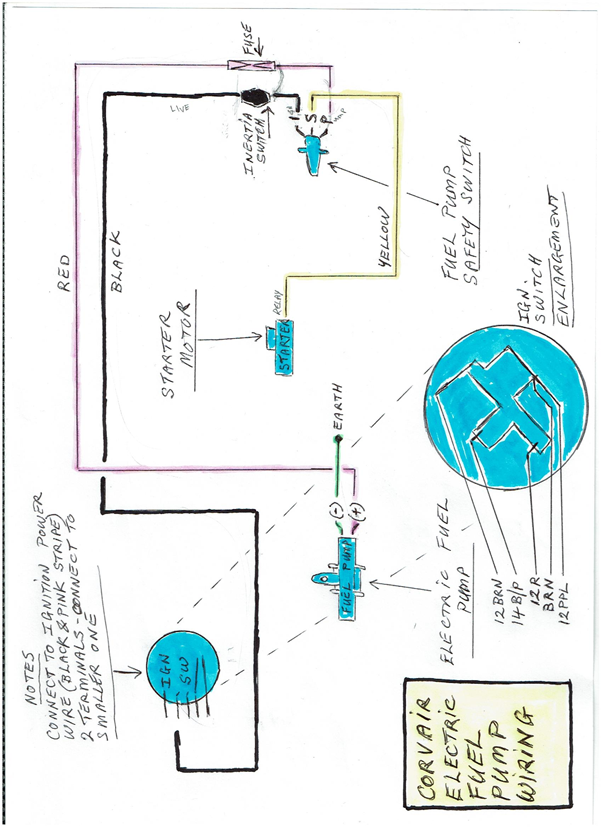 NOTES
CONNECT TO IGNITION POWER
WIRE (BLACK & PINK STRIPE)
2 TERMINALS - CONNECT TO
SMALLER ONE
RED
BLACK
LIVE
IGN
SW
STARTER
MOTOR
STARTER
RELAY
INERTIA
SWITCH
FUSE
Ign
S
P
EARTH
(-)
(+)
FUEL PUMP
YELLOW
FUEL PUMP
SAFETY SWITCH
ELECTRIC FUEL
PUMP
IGN.
SWITCH
ENLARGEMENT
12BRN
14B/P
12R
BRN
12PPL
CORVAIR
ELECTRIC
FUEL
PUMP
WIRING